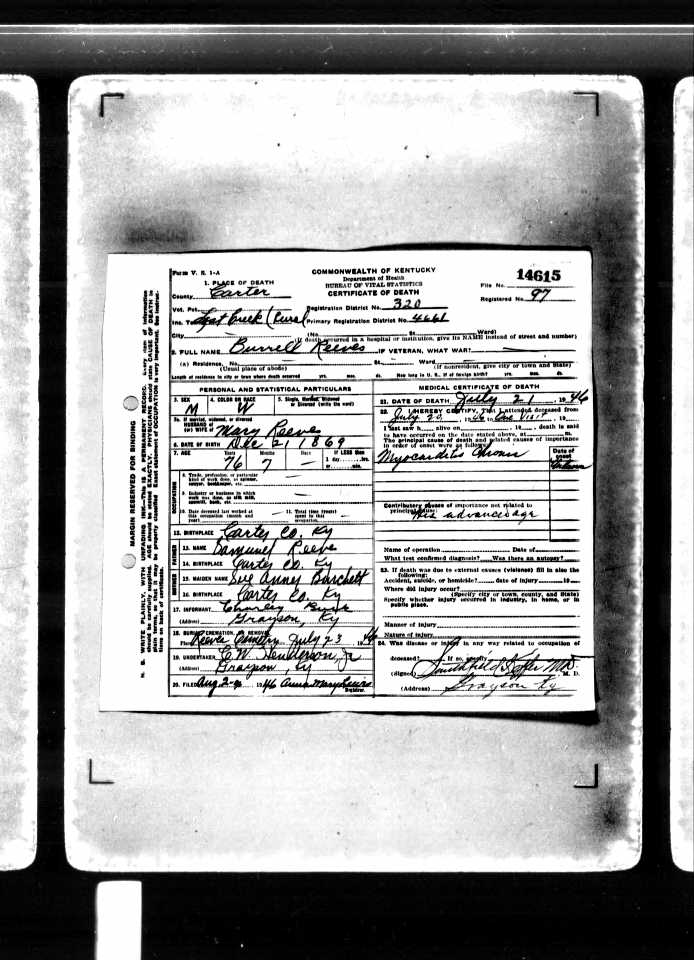 Form V. S. 1-A
COMMONWEALTH OF KENTUCKY
Department of Health
BUREAU OF VITAL STATISTICS
CERTIFICATE OF DEATH
File No. 14615
Registered No. 97
1. PLACE OF DEATH
County Carter
Vot. Pct. Lost Creek (Rural)
Registration District No. 320
Inc. Town
Primary Registration District No. 4661
City (No. St. Ward)
(If death occurred in a hospital or institution, give its NAME instead of street and number)
2. FULL NAME Burrell Reeves IF VETERAN, WHAT WAR?
(a) Residence. No. St. Ward
(Usual place of abode) (If nonresident, give city or town and State)
Length of residence in city or town where death occurred yrs. mos. ds. How long in U. S., if of foreign birth? yrs. mos. ds.
PERSONAL AND STATISTICAL PARTICULARS
3. SEX M
4. COLOR OR RACE W
5. Single, Married, Widowed or Divorced (write the word)
5a. If married, widowed, or divorced
HUSBAND of
(or) WIFE of Mary Reeves
6. DATE OF BIRTH Dec 21 1869
7. AGE Years 76 Months 7 Days — IF LESS than
1 day hrs.
or min.
OCCUPATION
8. Trade, profession, or particular
kind of work done, as spinner,
sawyer, bookkeeper, etc.
9. Industry or business in which
work was done, as silk mill,
sawmill, bank, etc.
10. Date deceased last worked at
this occupation (month and
year)
11. Total time (years)
spent in this
occupation
12. BIRTHPLACE Carter Co. Ky
FATHER
13. NAME Samuel Reeve
14. BIRTHPLACE Carter Co. Ky
MOTHER
15. MAIDEN NAME Sue Anney
16. BIRTHPLACE Carter Co. Ky
17. INFORMANT Charley
(Address) Grayson, Ky
18. BURIAL, CREMATION, OR REMOVAL
Place Reeves Cemetery July 23 1946
19. UNDERTAKER C. W. Henderson, Jr
(Address) Grayson Ky
20. FILED Aug 2 1946 Anna Mary Lewis
Registrar.
MEDICAL CERTIFICATE OF DEATH
21. DATE OF DEATH July 21 1946
22. I HEREBY CERTIFY, That I attended deceased from
July 20, 1946 One Visit, 19
I last saw h alive on , 19 death is said
to have occurred on the date stated above, at m.
The principal cause of death and related causes of importance
in order of onset were as follows:
Date of onset
Myocarditis Chronic
Contributory causes of importance not related to
principal cause:
His advanced age
Name of operation Date of
What test confirmed diagnosis? Was there an autopsy?
23. If death was due to external causes (violence) fill in also the
following:
Accident, suicide, or homicide? date of injury 19
Where did injury occur?
(Specify city or town, county, and State)
Specify whether injury occurred in industry, in home, or in
public place.
Manner of injury
Nature of injury
24. Was disease or injury in any way related to occupation of
deceased? If so, specify
(Signed) M. D.
(Address) Grayson Ky
MARGIN RESERVED FOR BINDING
N. B. WRITE PLAINLY, WITH UNFADING INK—THIS IS A PERMANENT RECORD. Every item of information
should be carefully supplied. AGE should be stated EXACTLY. PHYSICIANS should state CAUSE OF DEATH in
plain terms, so that it may be properly classified. Exact statement of OCCUPATION is very important. See instructions on back of certificate.